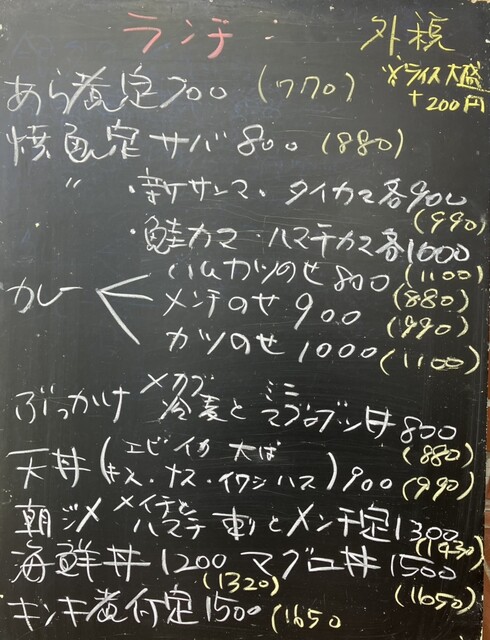 ランチ: 外税
※ライス大盛
+200円
あら煮定 700 (770)
焼魚定 サバ 800 (880)
〃 ・新サンマ・タイカマ各900
(990)
・鮭カマ・ハマチカマ各1000
(1100)
カレー ハムカツのせ 800
(880)
メンチのせ 900
(990)
カツのせ 1000 (1100)
ぶっかけ メカブ冷麦と ミニマグロブツ丼 800
(880)
天丼 (エビ イカ 大ば
キス・ナス・イワシ ハス) 900 (990)
朝〆 メイチと
ハマチ 刺とメンチ定 1300
(1430)
海鮮丼 1200 マグロ丼 1500
(1320) (1650)
キンキ煮付定 1500 (1650